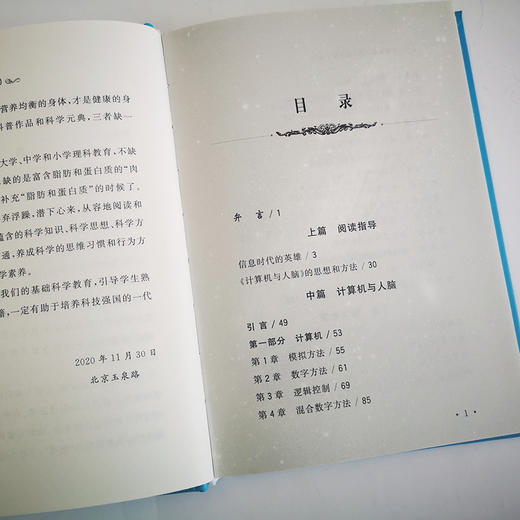 营养均衡的身体，才是健康的身
科普作品和科学元典，三者缺一
大学、中学和小学理科教育，不缺
缺的是富含脂肪和蛋白质的“肉
补充“脂肪和蛋白质”的时候了。
弃浮躁，潜下心来，从容地阅读和
蕴含的科学知识、科学思想、科学方
通，养成科学的思维习惯和行为方
学素养。
我们的基础科学教育，引导学生熟
籍，一定有助于培养科技强国的一代
2020年11月30日
北京玉泉路
目 录
弁 言 / 1
上篇 阅读指导
信息时代的英雄 / 3
《计算机与人脑》的思想和方法 / 30
中篇 计算机与人脑
引言 / 49
第一部分 计算机 / 53
第1章 模拟方法 / 55
第2章 数字方法 / 61
第3章 逻辑控制 / 69
第4章 混合数字方法 / 85
· 1 ·